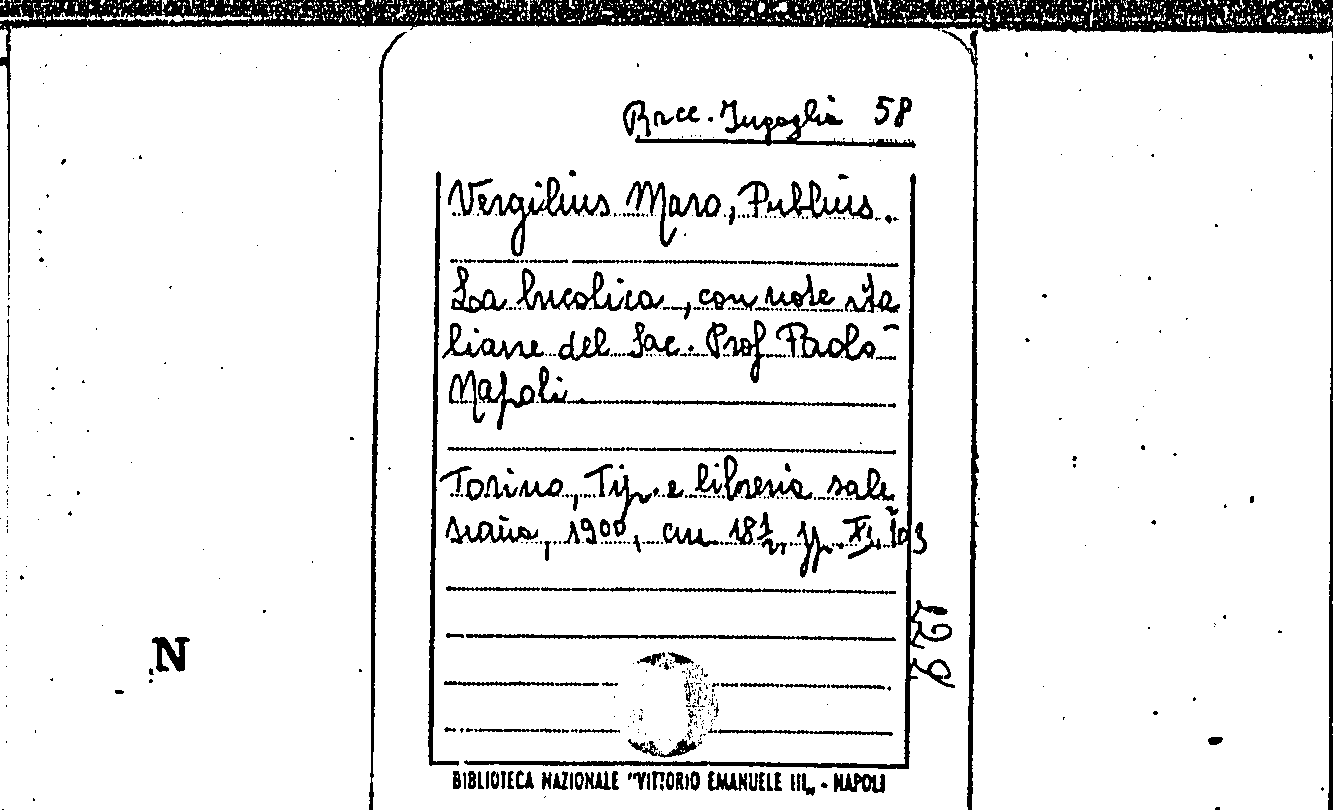 Racc. Jugaglia 58
Vergilius Maro, Publius.
La bucolica, con note ita
liane del Sac. Prof Paolo
Napoli.
Torino, Tip. e libreria sale
siana, 1900, cm 18½, pp. XI, 103
N
BIBLIOTECA NAZIONALE "VITTORIO EMANUELE III„ - NAPOLI